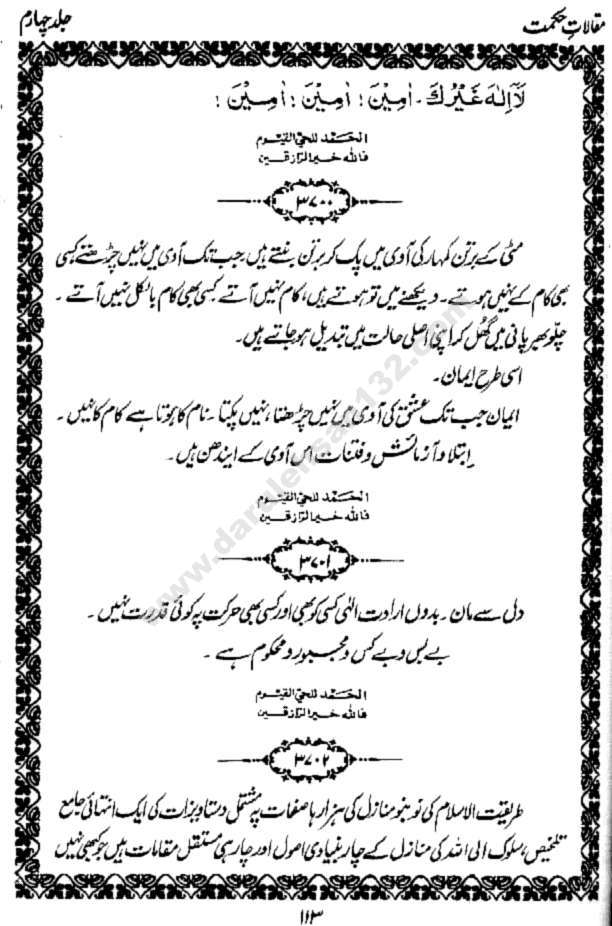 مقالاتِ حکمت
جلد چہارم
لَآ اِلٰهَ غَيْرُكَ۔ اٰمِيْنَ؛ اٰمِيْنَ؛ اٰمِيْنَ؛
الحَمد للحيّ القيّوم
فالله خير الرّازقين
۳۷۰۰
مٹی کے برتن کمہار کی آوی میں پک کر برتن بنتے ہیں، جب تک آوی میں نہیں چڑھتے کسی
بھی کام کے نہیں ہوتے۔ دیکھنے میں تو ہوتے ہیں، کام نہیں آتے۔ کسی بھی کام بالکل نہیں آتے۔
چلّو بھر پانی میں گھُل کر اپنی اصلی حالت میں تبدیل ہو جاتے ہیں۔
اسی طرح ایمان۔
ایمان جب تک عشق کی آوی میں نہیں چڑھتا، نہیں پکتا۔ نام کا ہوتا ہے کام کا نہیں۔
اِبتلا و آزمائش و فتنات اس آوی کے ایندھن ہیں۔
الحَمد للحيّ القيّوم
فالله خير الرّازقين
۳۷۰۱
دل سے مان۔ بدوں ارادت الٰہی کسی کو بھی اور کسی بھی حرکت پہ کوئی قدرت نہیں۔
بے بس و بے کس و مجبور و محکوم ہے۔
الحَمد للحيّ القيّوم
فالله خير الرّازقين
۳۷۰۲
طریقیت الاسلام کی نو بنو منازل کی ہزار ہا صفحات پہ مشتمل دستاویزات کی ایک انتہائی جامع
تلخیص، سلوک الی اللہ کی منازل کے چار بنیادی اصول اور چار ہی مستقل مقامات ہیں جو کبھی نہیں
۱۱۳
www.darulehsan132.com